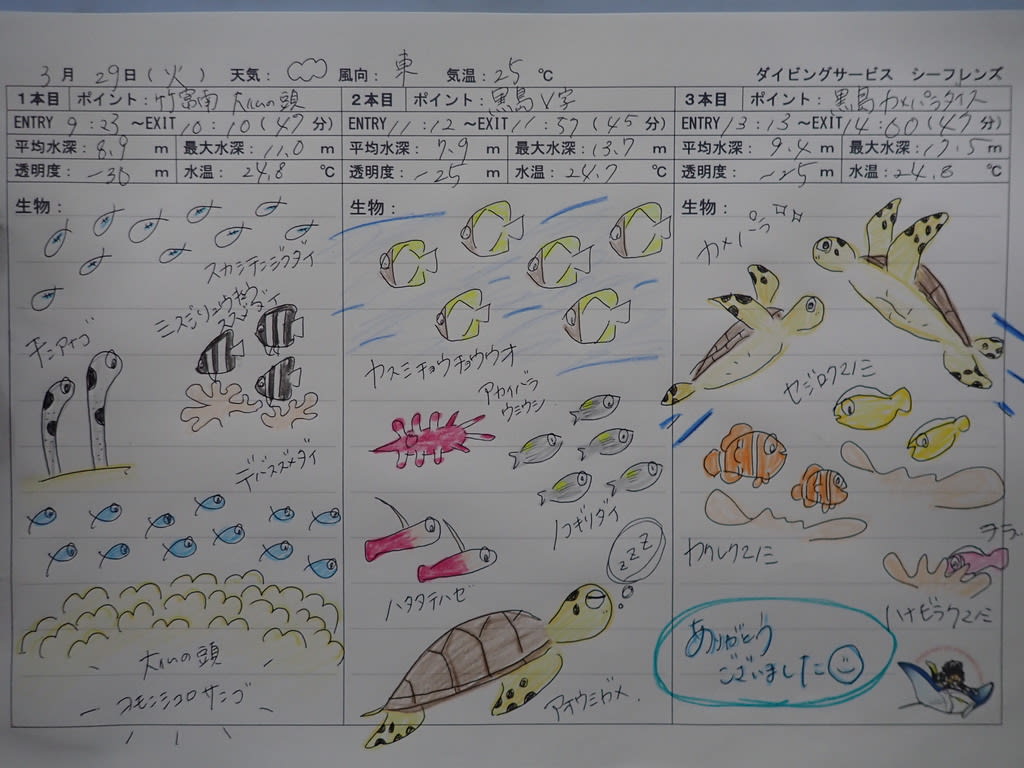 3月29日(火) 天気: 風向:東 気温:25℃ ダイビングサービス シーフレンズ
1本目 ポイント:竹富南 大仏の頭
ENTRY 9:23~EXIT 10:10(47分)
平均水深:8.9 m 最大水深:11.0 m
透明度:~30 m 水温:24.8 ℃
生物:
スカシテンジクダイ
ミスジリュウキュウ
スズメダイ
チンアナゴ
デバスズメダイ
大仏の頭
コモンシコロサンゴ
2本目 ポイント:黒島V字
ENTRY 11:12~EXIT 11:57(45分)
平均水深:7.9 m 最大水深:13.7 m
透明度:~25 m 水温:24.7 ℃
生物:
カスミチョウチョウウオ
アカイバラ
ウミウシ
ノコギリダイ
ハタタテハゼ
zzZ
アオウミガメ
3本目 ポイント:黒島カメパラダイス
ENTRY 13:13~EXIT 14:00(47分)
平均水深:9.4 m 最大水深:17.5m
透明度:~25m 水温:24.8 ℃
生物:
カメパラ
セジロクマノミ
カクレクマノミ
ハナビラクマノミ
ありがとう
ございました